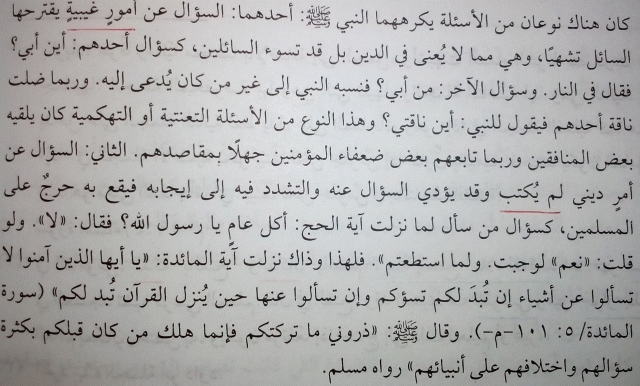 كان هناك نوعان من الأسئلة يكرههما النبي ﷺ: أحدهما: السؤال عن أمورٍ غيبيةٍ يقترحها
السائل تشهيًا، وهي مما لا يُعنى في الدين بل قد تسوء السائلين، كسؤال أحدهم: أين أبي؟
فقال في النار. وسؤال الآخر: من أبي؟ فنسبه النبي إلى غير من كان يُدعى إليه. وربما ضلت
ناقة أحدهم فيقول للنبي: أين ناقتي؟ وهذا النوع من الأسئلة التعنتية أو التهكمية كان يلقيه
بعض المنافقين وربما تابعهم بعض ضعفاء المؤمنين جهلًا بمقاصدهم. الثاني: السؤال عن
أمرٍ ديني لم يُكتب وقد يؤدي السؤال عنه والتشدد فيه إلى إيجابه فيقع به حرجٌ على
المسلمين، كسؤال من سأل لما نزلت آية الحج: أكل عامٍ يا رسول الله؟ فقال: «لا». ولو
قلت: «نعم» لوجبت. ولما استطعتم». فلهذا وذاك نزلت آية المائدة: «يا أيها الذين آمنوا لا
تسألوا عن أشياء إن تُبدَ لكم تسؤكم وإن تسألوا عنها حين يُنزل القرآن تُبد لكم» (سورة
المائدة/ ٥: ١٠١-م-). وقال ﷺ: «ذروني ما تركتكم فإنما هلك من كان قبلكم بكثرة
سؤالهم واختلافهم على أنبيائهم» رواه مسلم.